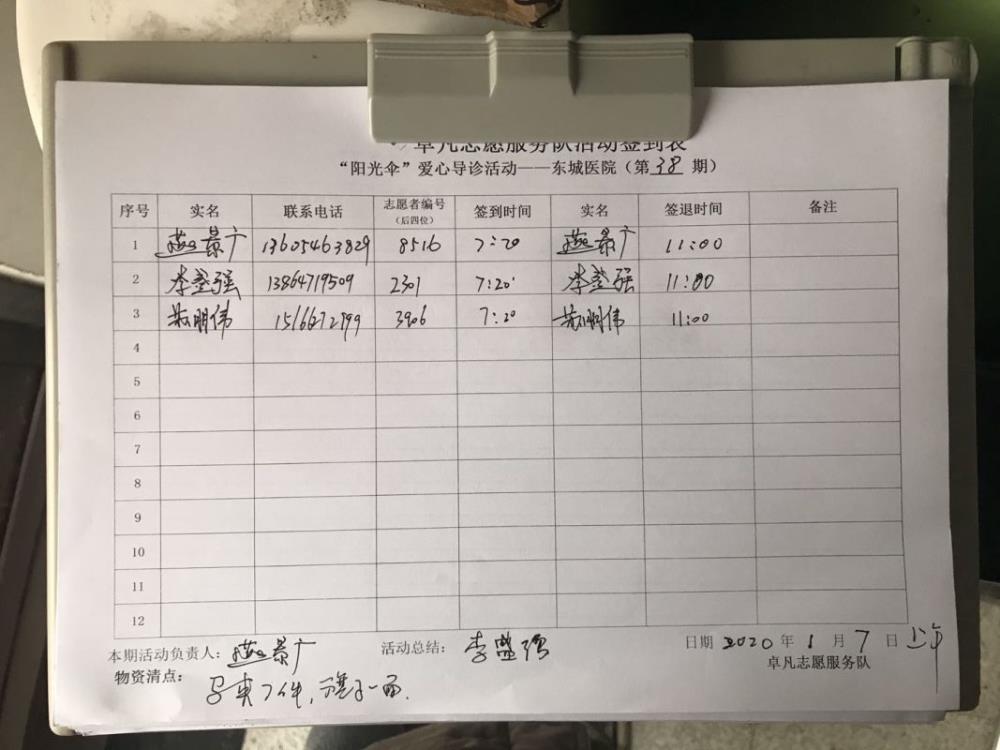 卓凡志愿服务队活动签到表
“阳光伞”爱心导诊活动——东城医院（第 38 期）
序号 实名 联系电话 志愿者编号（后四位） 签到时间 实名 签退时间 备注
1 燕景广 13605463829 8516 7:20 燕景广 11:00
2 李盛强 13864719509 2301 7:20 李盛强 11:00
3 明伟 15166272799 3906 7:20 明伟 11:00
4
5
6
7
8
9
10
11
12
本期活动负责人：燕景广 活动总结：李盛强 日期 2020 年 1 月 7 日 上午
卓凡志愿服务队
物资清点：
马夹7件，旗子一面.